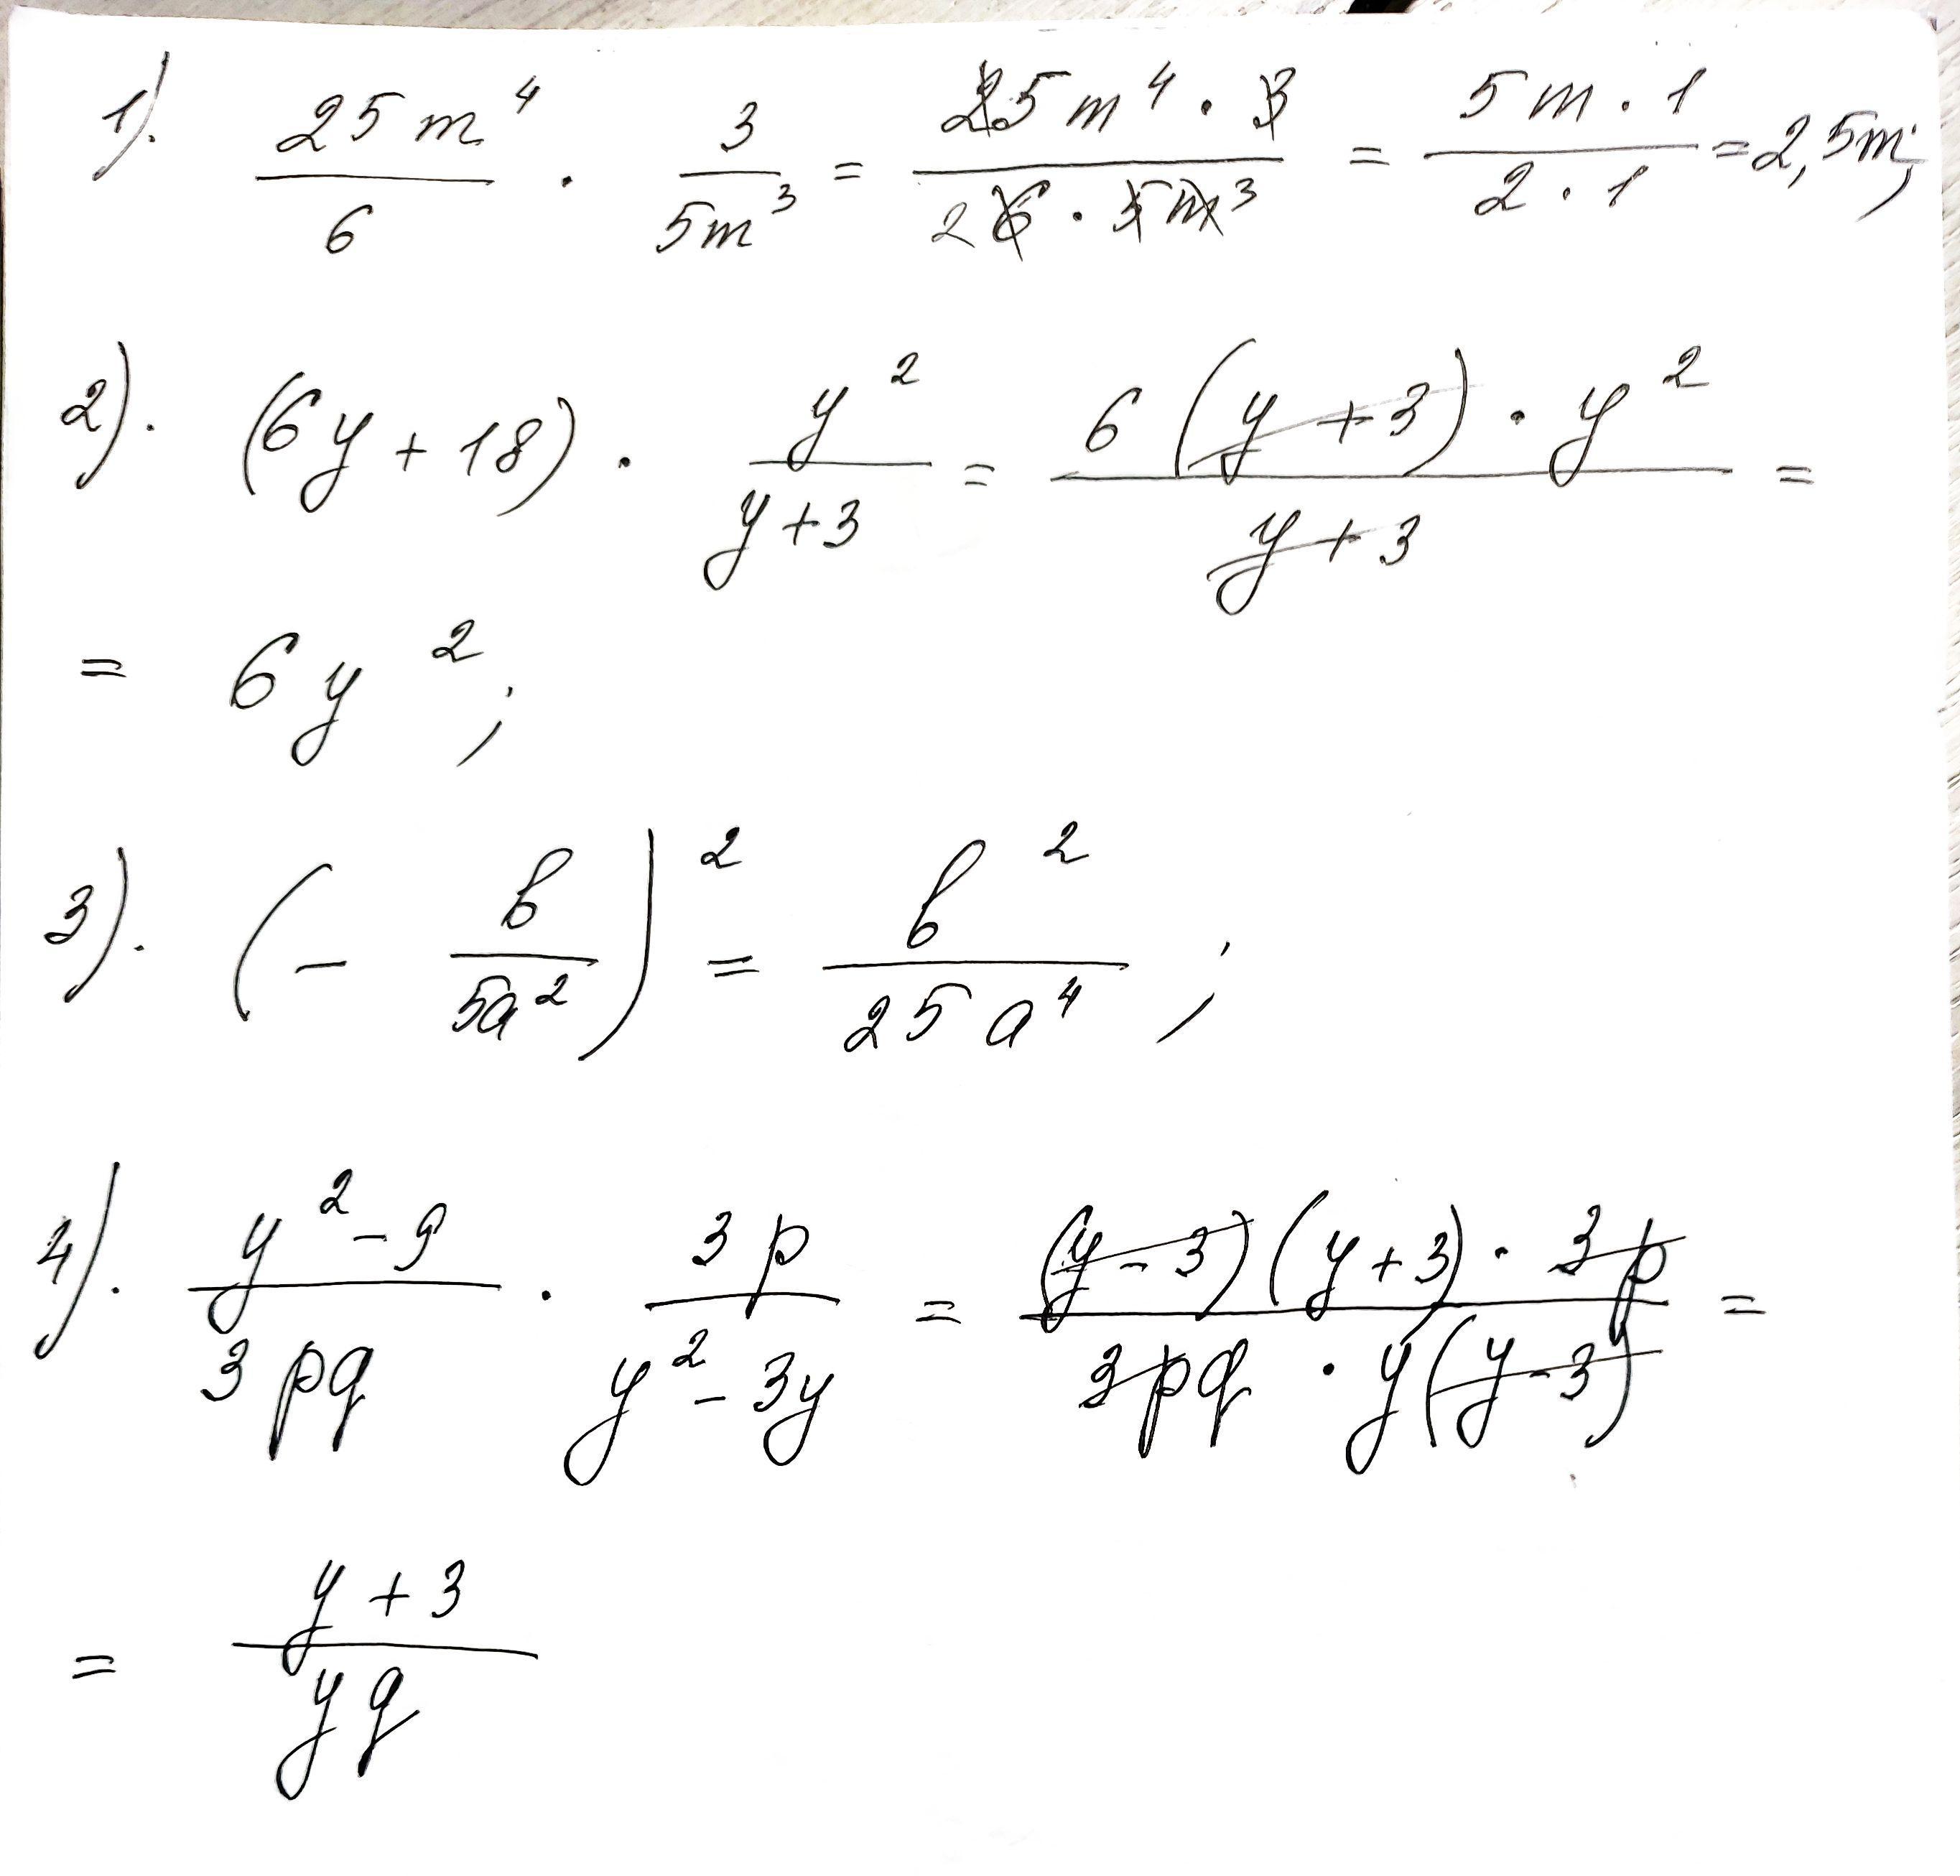 1). 25m⁴/6 · 3/5m³ = 25m⁴ · 3/2 6 · 5m³ = 5m · 1/2 · 1 = 2,5m;
2). (6y + 18) · y²/y+3 = 6(y+3) · y²/y+3 =
= 6y²;
3). (- b/5a²)² = b²/25a⁴;
4). y²-9/3pq · 3p/y²-3y = (y-3)(y+3) · 3p/3pq · y(y-3) =
= y+3/yq